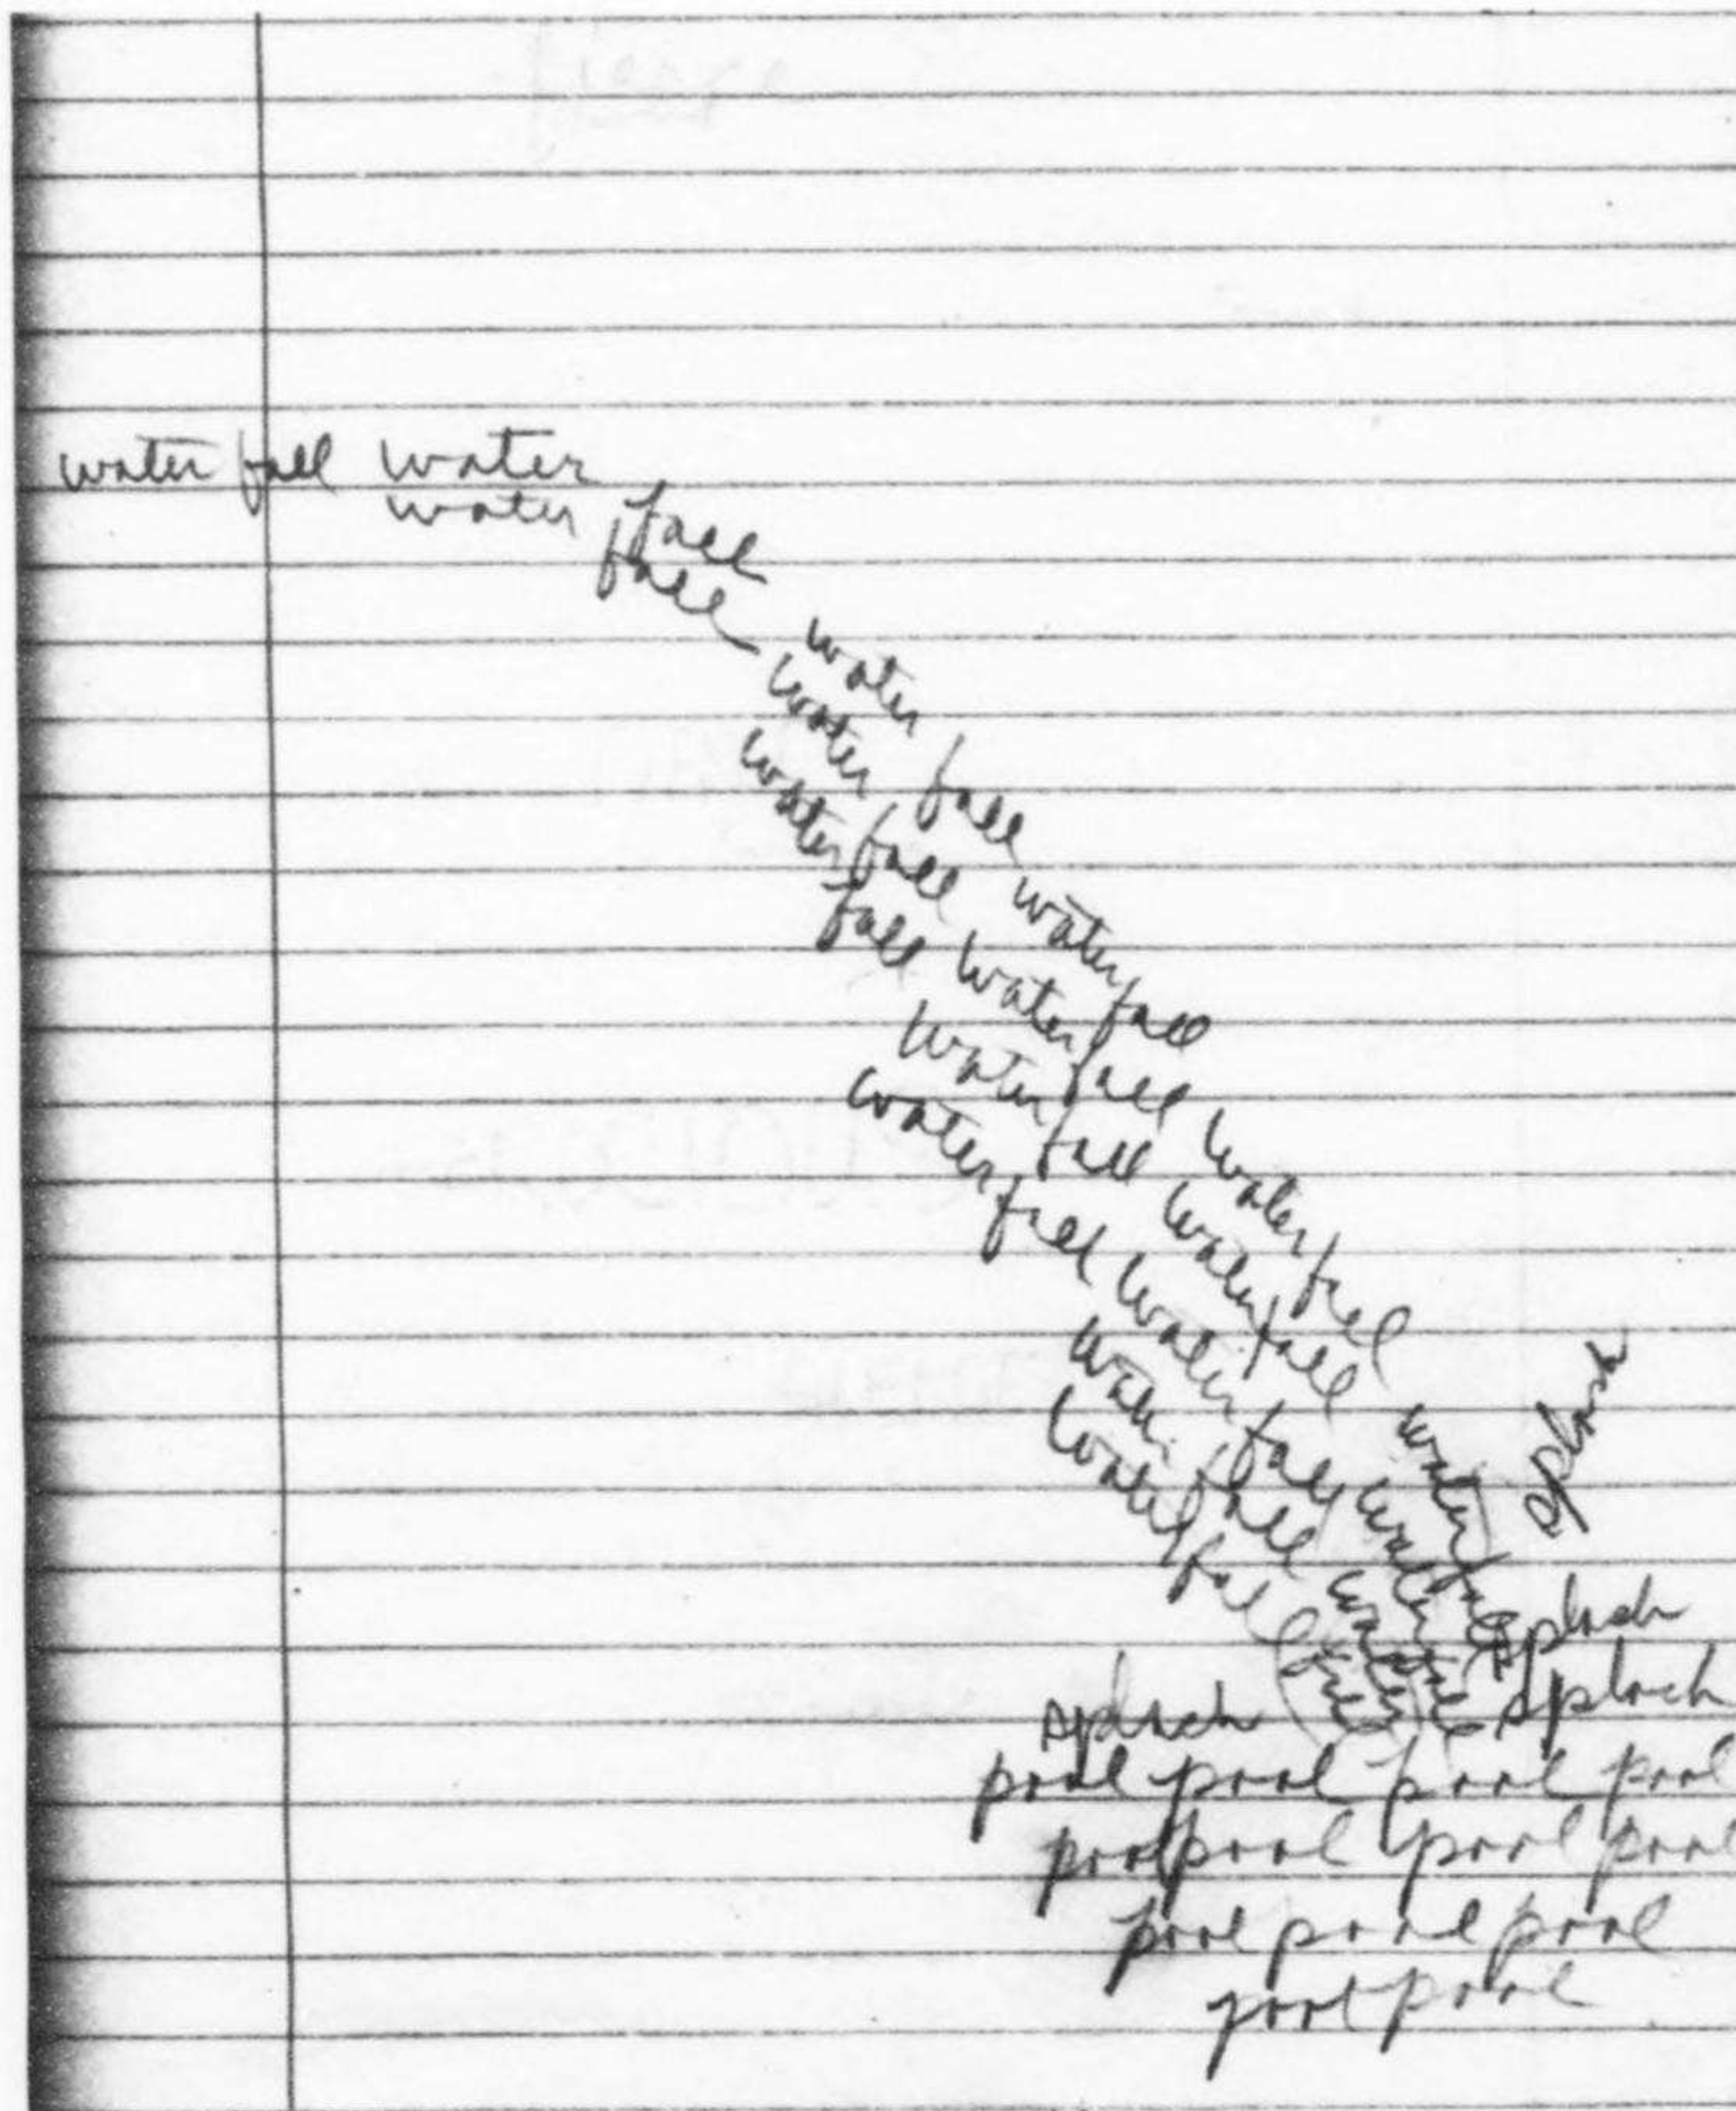 water fall water fall water fall water fall water fall water fall
water fall water fall water fall water fall water
water fall water fall water fall
water fall water fall water
water fall
splash
splash
splash splash
pool pool pool pool
pool pool pool pool
pool pool pool
pool pool